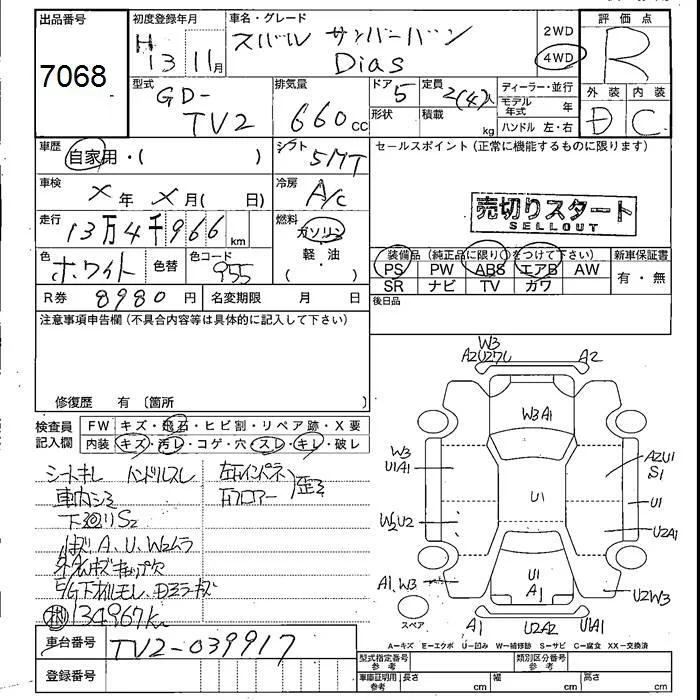 出品番号
7068
初度登録年月
H 13 11月
車名・グレード
スバル サンバーバン
Dias
2WD
4WD
評価点
R
型式
GD-
TV2
排気量
660cc
ドア
5
形状
定員
2(4)人
積載
kg
ディーラー・並行
モデル年式 年
ハンドル 左・右
外装
D
内装
C
車歴
自家用・( )
シフト
5MT
セールスポイント(正常に機能するものに限ります)
車検
× 年 × 月( 日)
冷房
A/C
売切りスタート
SELLOUT
走行
13万4千966km
燃料
ガソリン
軽・油
( )
色
ホワイト
色替
色コード
955
装備品(純正品に限り○をつけて下さい)
新車保証書
PS PW ABS エアB AW
有・無
SR ナビ TV カワ
R券 8980円
名変期限 月 日
後日品
注意事項申告欄(不具合内容等は具体的に記入して下さい)
修復歴 有〔箇所 〕
検査員記入欄
FW キズ・飛石・ヒビ割・リペア跡・X要
内装 キズ・汚レ・コゲ・穴・スレ・キレ・破レ
シートキレ ハンドルスレ
車内シミ
下廻りS2
A、U、W2ムラ
134967km
左インパネ
右フロアー
歪ミ
W3
A2U27L
A2
W3A1
W3
U1A1
A2U1
S1
U1
U1
W2U2
U2A1
A1、W3
U1
A1
U2W3
スペア
A1
U2A2
U1A1
A−キズ E−エクボ U−凹み W−補修跡 S−サビ C−腐食 XX−交換済
車台番号
TV2-039917
登録番号
型式指定番号
参考
類別区分番号
参考
車庫証明用
参考
長さ cm
幅 cm
高さ cm